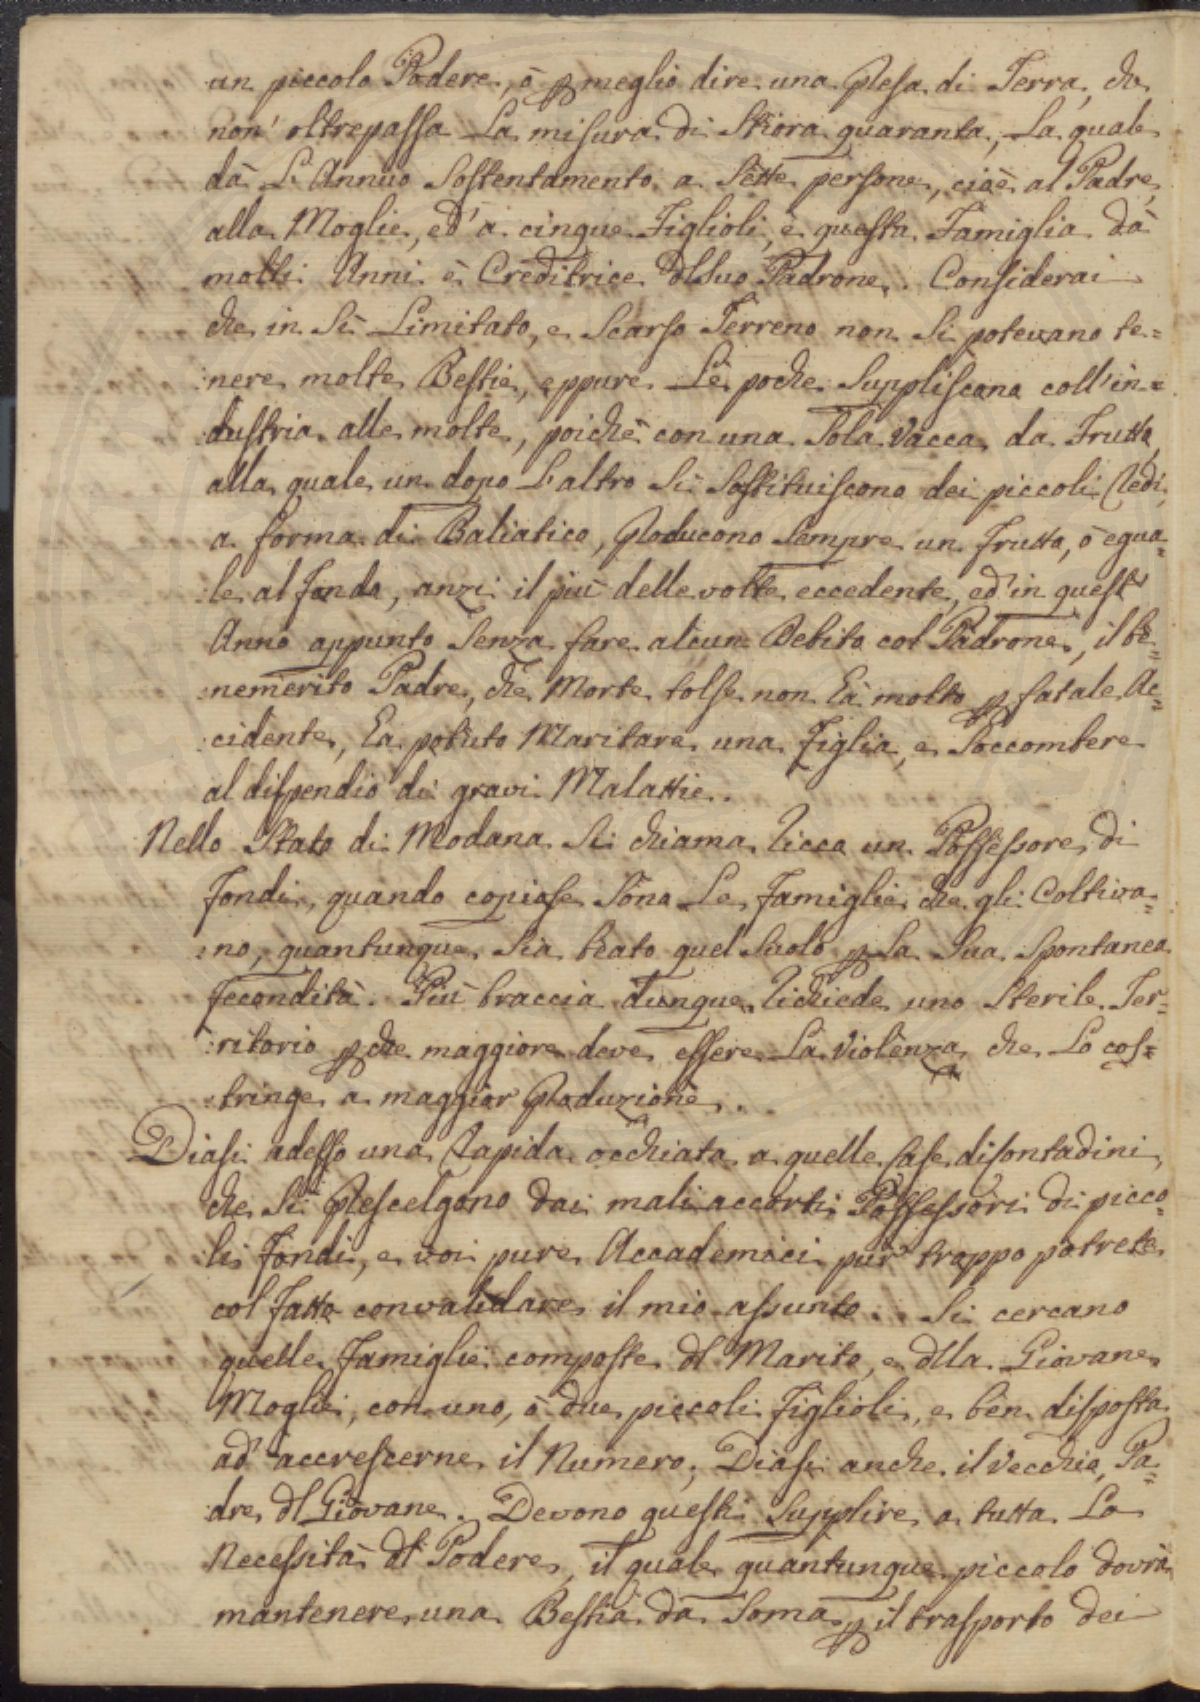 un piccolo Podere, ò p meglio dire una Presa di Terra, che
non' oltrepassa La misura di Stiora quaranta, La quale
dà L'Annuo Sostentamento a Sette persone, cioè al Padre,
alla Moglie, ed' a cinque Figlioli, e questa Famiglia dà
molti Anni è Creditrice dl suo Padrone. Considerai
che in Sì Limitato, e Scarso Terreno non Si potevano te=
:nere molte Bestie, eppure Le poche Suppliscano coll'in=
:dustria alle molte, poichè con una Sola Vacca da Frutto
alla quale un dopo L'altro Si Sostituiscono dei piccoli Redi,
a forma di Baliatico, Producono Sempre un frutto, ò egua=
:le al fondo, anzi il più delle volte eccedente, ed' in quest'
Anno appunto Senza fare alcun Debito col Padrone, il be=
:nemerito Padre, che Morte tolse non Eà molto p fatale Ac=
:cidente, Ea potuto Maritare una Figlia, e Soccombere
al dispendio di gravi Malattie.
Nello Stato di Modana Si chiama Ricco un Possessore di
fondi, quando copiose Sono Le famiglie che gli Coltiva=
:no, quantunque Sia beato quel Suolo p La Sua Spontanea
fecondità. Più braccia dunque richiede uno Sterile Ter=
:ritorio p che maggiore deve essere La Violenza che Lo cos=
:tringe a maggior Produzione.
Diasi adesso una Rapida occhiata a quelle Case di Contadini,
che Si Prescelgono dai mali accorti Possessori di picco=
li fondi, e voi pure Accademici pur troppo potrete
col fatto convalidare il mio assunto. Si cercano
quelle famiglie composte dl Marito, e dlla Giovane
Moglie, con uno, ò due piccoli Figlioli, e ben disposta
ad' accrescerne il Numero; Diasi anche il Vecchio Pa=
:dre dl Giovane. Devono questi Supplire a tutta La
Necessità dl Podere, il quale quantunque piccolo dovrà
mantenere una Bestia da Soma p il trasporto dei